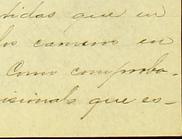 tidas que en
los camino en
Como comproba-
isionals que es-